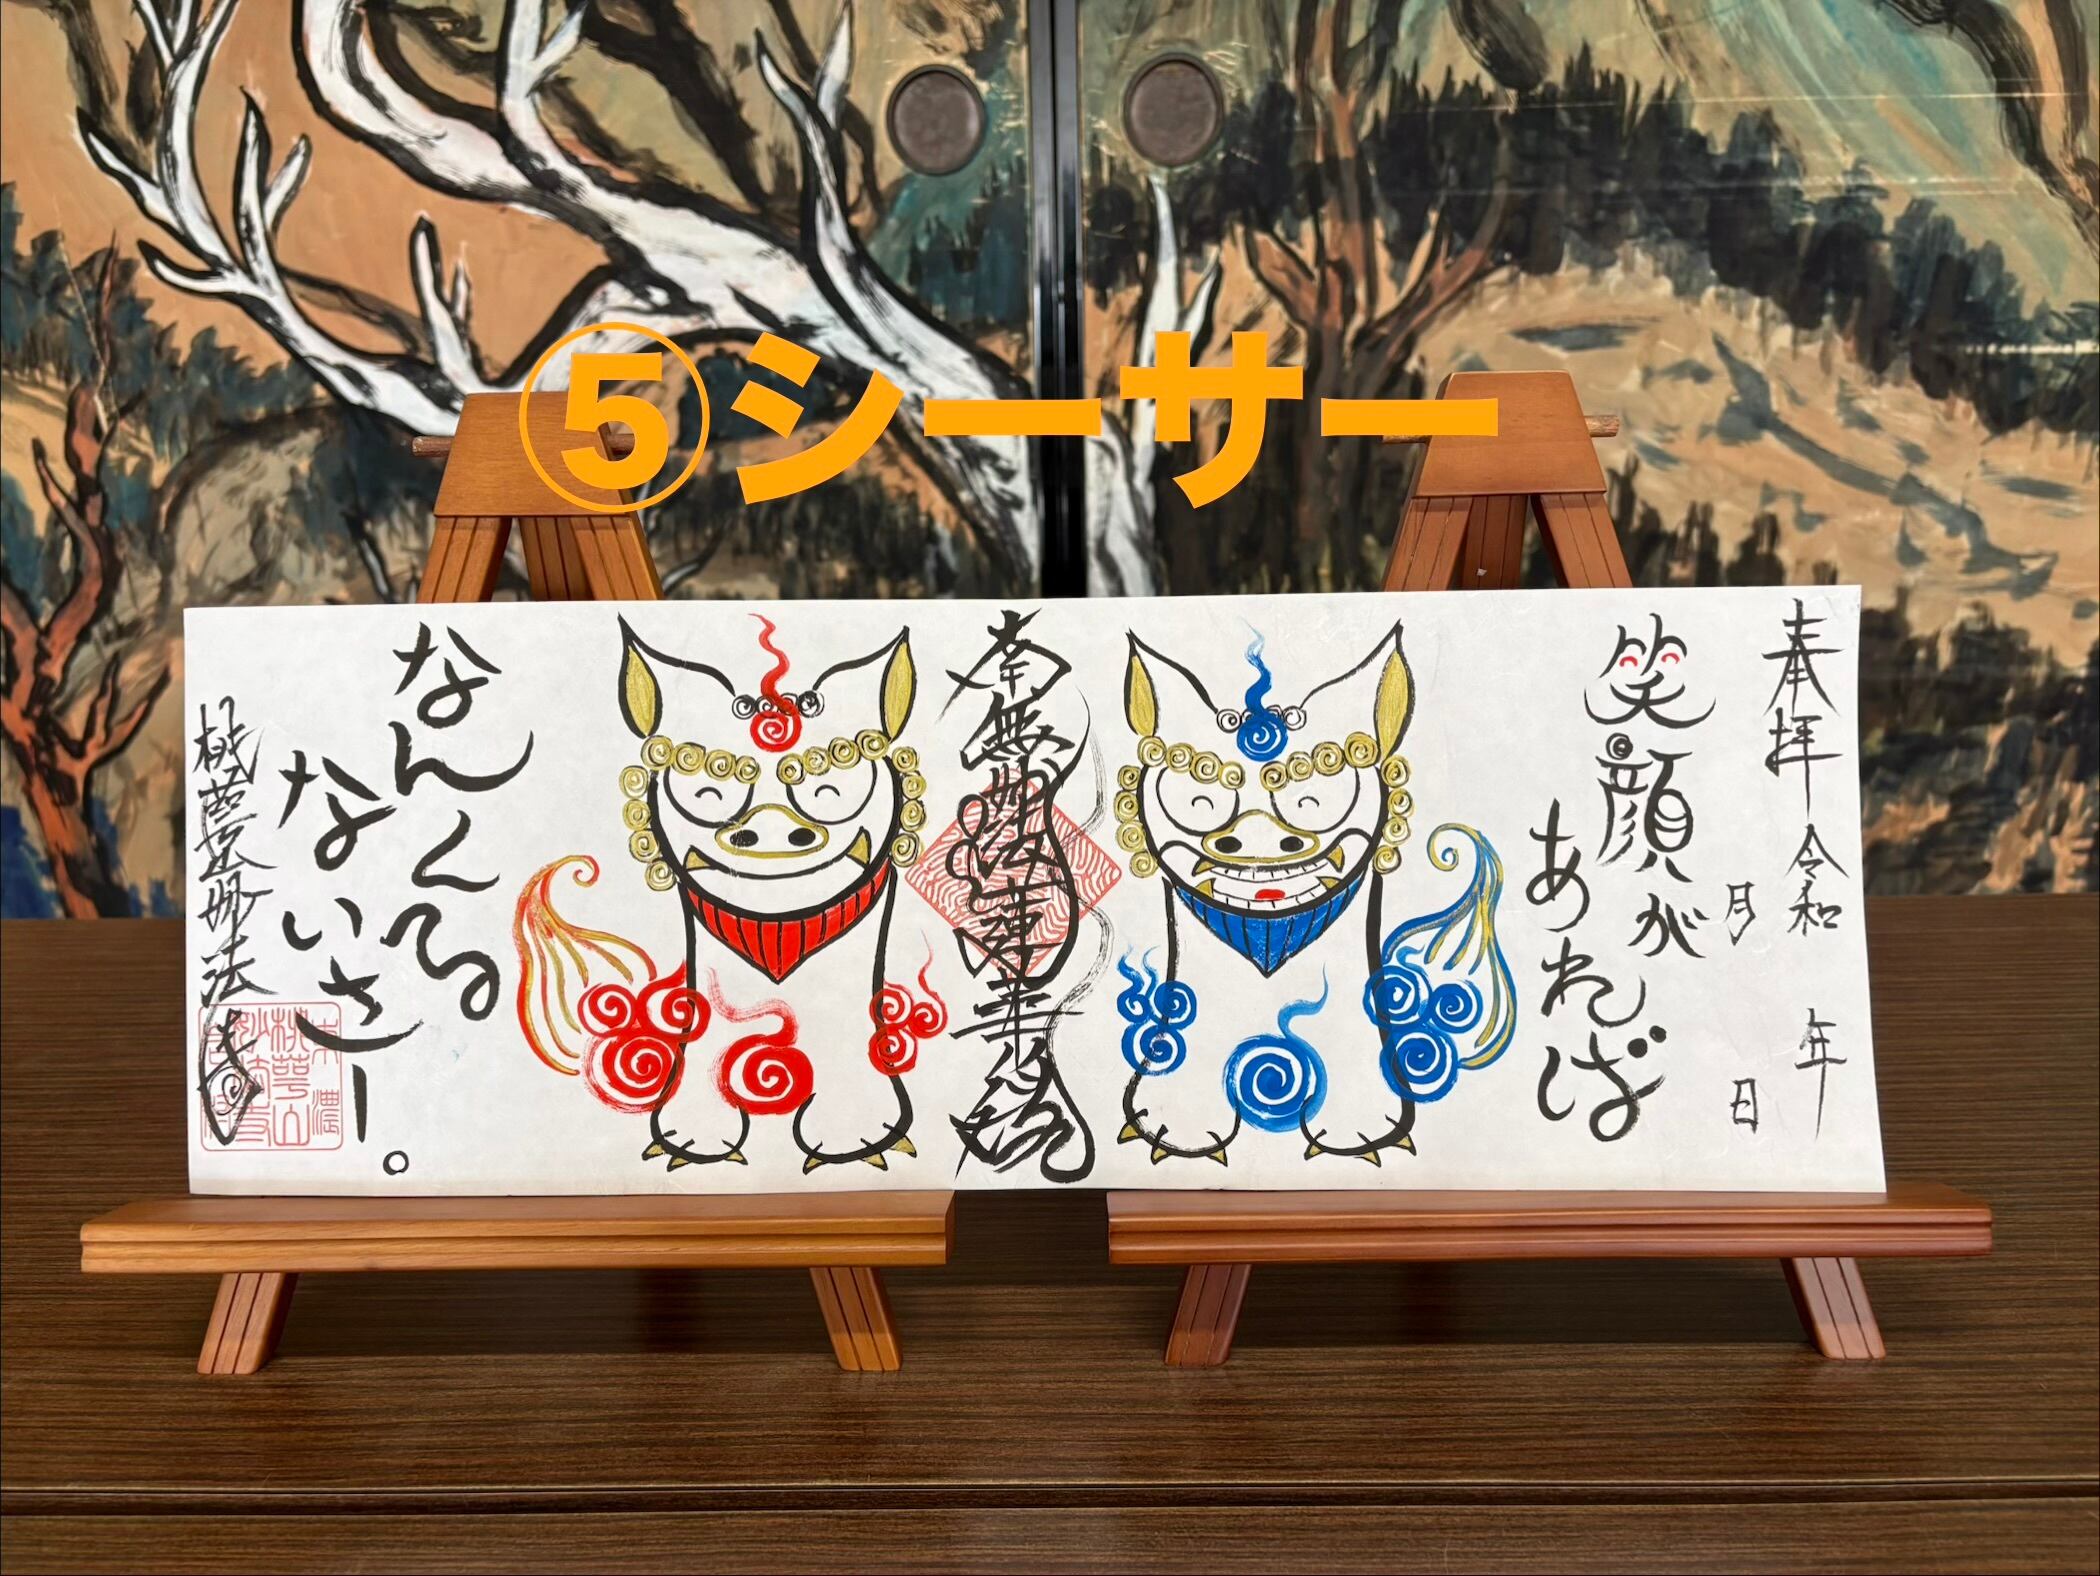 ⑤シーサー
奉拝 令和 年
月 日
笑顔が
あれば
南無妙法蓮華経
なんくる
ないさー。